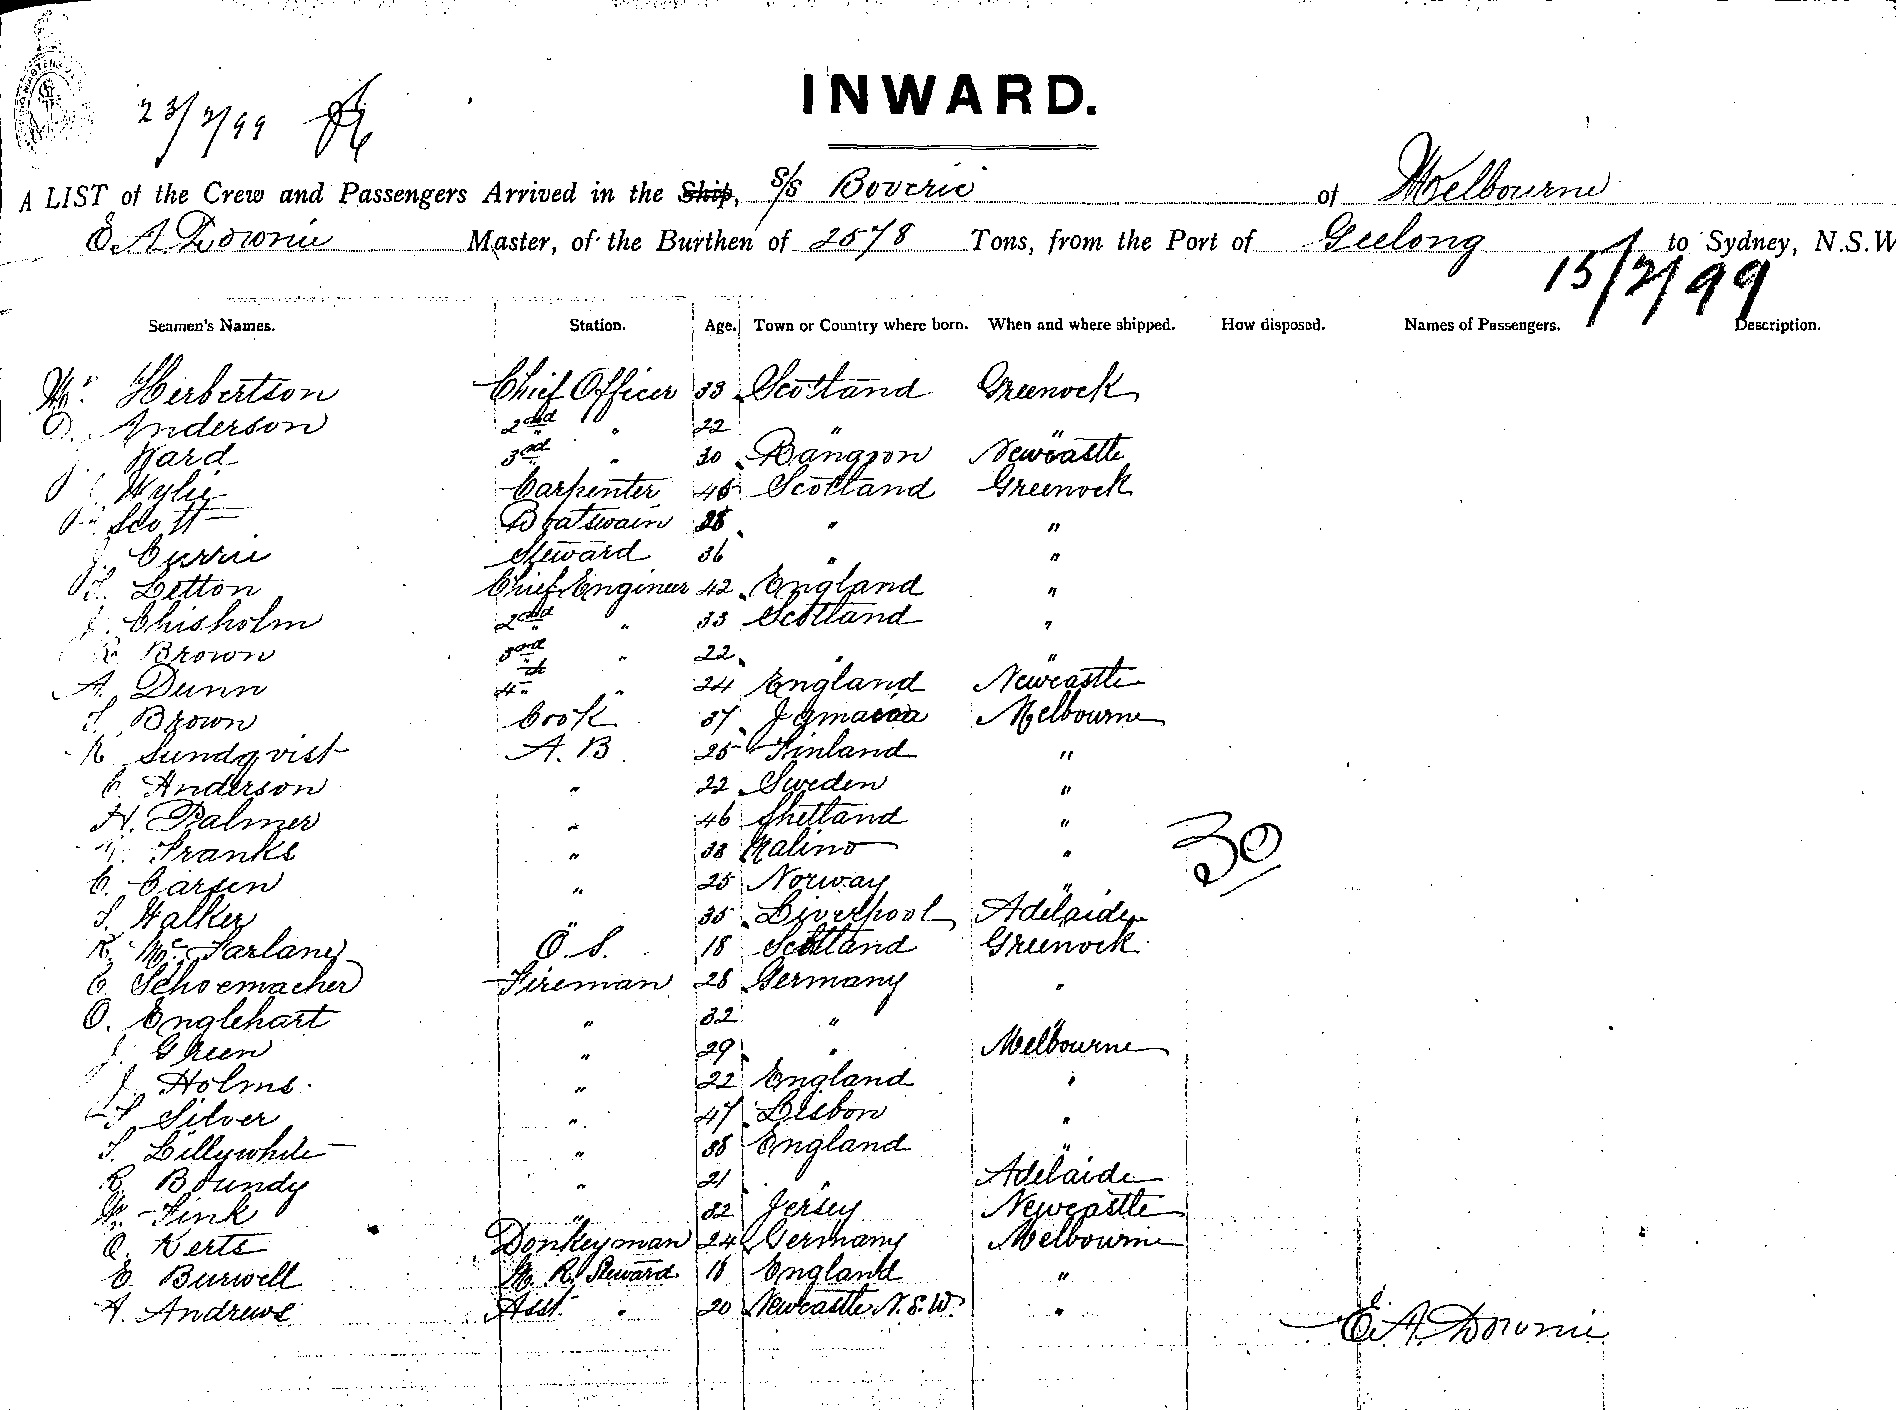 23/2/99
INWARD.
A LIST of the Crew and Passengers Arrived in the Ship, S/S Boveric of Melbourne
E A Downie Master, of the Burthen of 2578 Tons, from the Port of Geelong to Sydney, N.S.W
15/2/99
Seamen's Names. Station. Age. Town or Country where born. When and where shipped. How disposed. Names of Passengers. Description.
Wm. Herbertson Chief Officer 33 Scotland Greenock
D. Anderson 2nd " 22 " "
J. Ward 3rd " 30 Rangoon Newcastle
J. Wylie Carpenter 45 Scotland Greenock
Scott Boatswain 28 " "
J. Currie Steward 36 " "
T. Letton Chief Engineer 42 England "
J. Chisholm 2nd " 33 Scotland "
R. Brown 3rd " 22 " "
A. Dunn 4th " 24 England Newcastle
S. Brown Cook 37 Jamaica Melbourne
Sundqvist A.B. 25 Finland "
C. Anderson " 22 Sweden "
H. Palmer " 46 Shetland "
Franks " 38 "
C. Carsen " 25 Norway "
S. Walker " 35 Liverpool Adelaide
R. McFarlane O.S. 18 Scotland Greenock
C. Schoemacher Fireman 28 Germany "
O. Englehart " 32 " "
J. Green " 29 " Melbourne
J. Holms. " 22 England "
S. Silver " 47 Lisbon "
S. Lillywhite " 38 England "
R. Boundy " 21 " Adelaide
W. Fink " 32 Jersey Newcastle
O. Kerts Donkeyman 24 Germany Melbourne
E. Burwell M. R. Steward 18 England "
A. Andrews Asst. " 20 Newcastle N.S.W. "
30
E. A. Downie